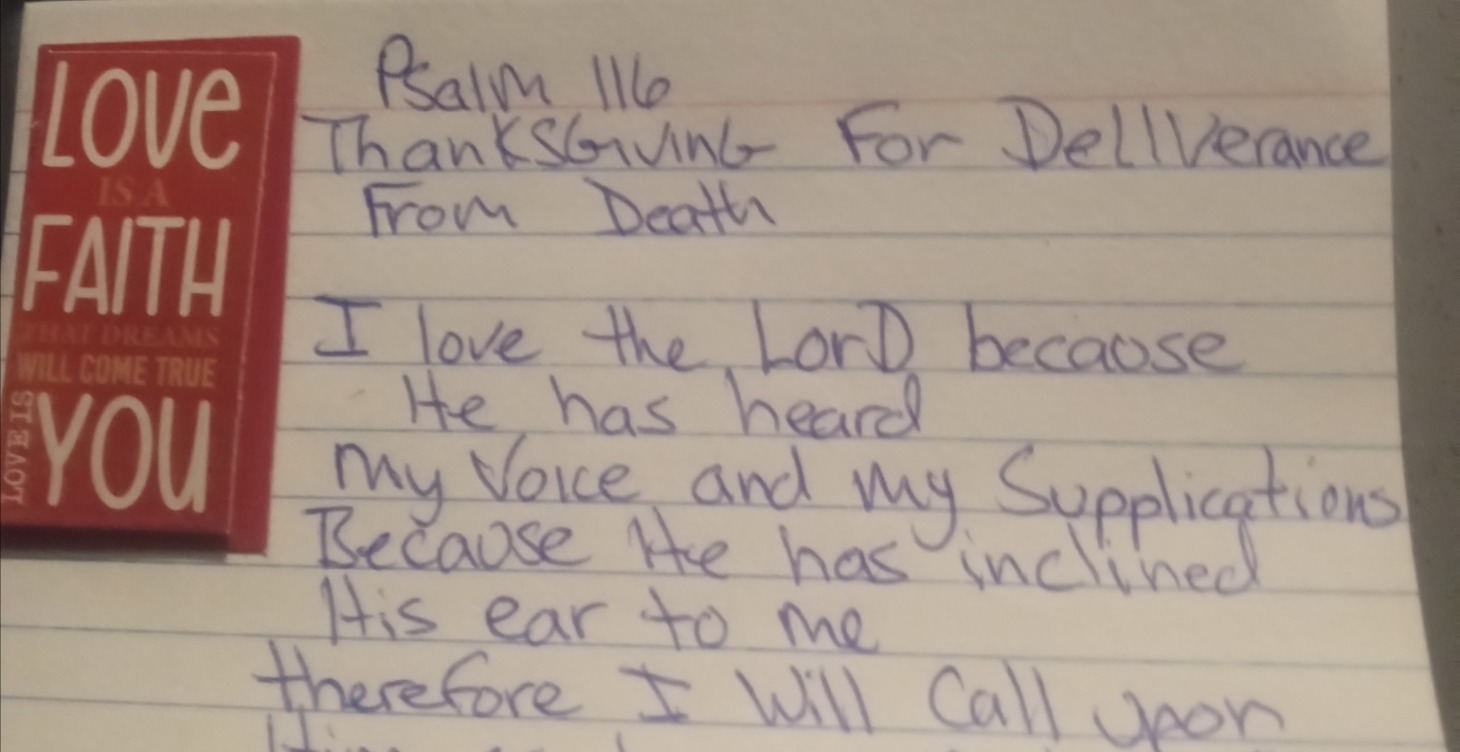 LOVE
IS A
FAITH
THAT DREAMS
WILL COME TRUE
LOVE IS
YOU
Psalm 116
ThanKSGiving For Dellverance
From Death
I love the LorD because
He has heard
my Voice and my Supplications
Because He has inclined
His ear to me
therefore I Will Call upon